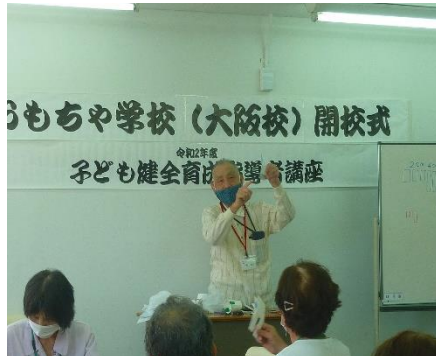 おもちゃ学校（大阪校）開校式
令和2年度
子ども健全育成指導者講座